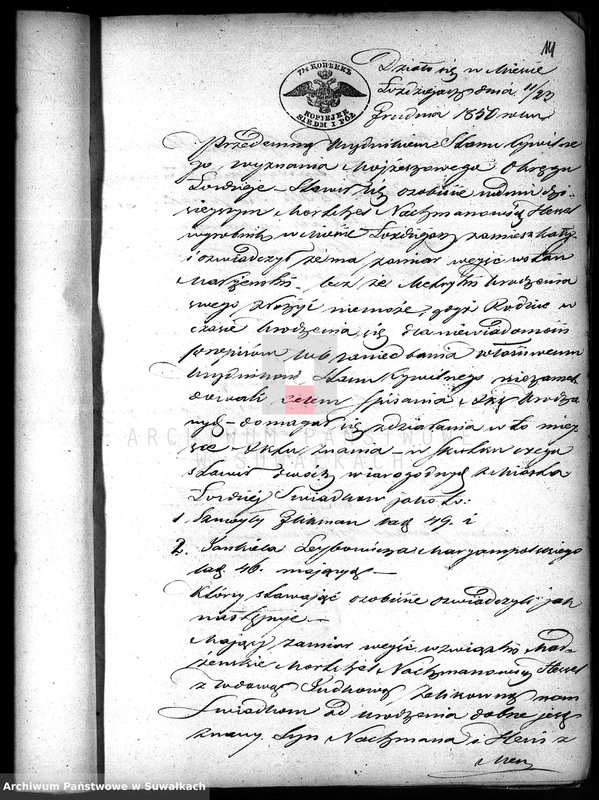 14
7½ КОПѢЕКЪ
KOPIEJEK
SIEDM I PÓŁ
Działo się w Mieście
Łozdziejach dnia 11/23
Grudnia 1850 roku
Przedemną Urzędnikiem Stanu Cywilne
go wyznania Mojżeszowego Okręgu
Łozdzieje Stawił się osobiście w dniu dzi
siejszym Mordchel Nachmanowicz
wyrobnik w Mieście Łozdziejach zamieszkały
i oświadczył że ma zamiar wejść w stan
Małżeński, lecz że Metryki Urodzenia
swego złożyć niemoże, gdyż Rodzice w
czasie urodzenia się dla niewiadomości
przepisów lub zaniedbania właściwemu
Urzędnikowi Stanu Cywilnego niezamel
dowali celem spisania Aktu Urodza
domagał się zdziałania w to miej
sce Aktu Znania w skutku czego
stawił dwóch wiarogodnych z Miasta
Łozdziej Świadków jako to:
1. lat 49. i
2. Jankiela Leybowicza Maryampolskiego
lat 46. mających
Którzy stawając osobiście oświadczyli jak
następuje
Mający zamiar wejść w związki Mał
żeńskie Mordchel Nachmanowicz
z wdową Judkową, nam
Świadkom od urodzenia dobrze jest
znany, Syn Nachmana i z
ARCHIWUM PAŃSTWOWE
W SUWAŁKACH
Archiwum Państwowe w Suwałkach